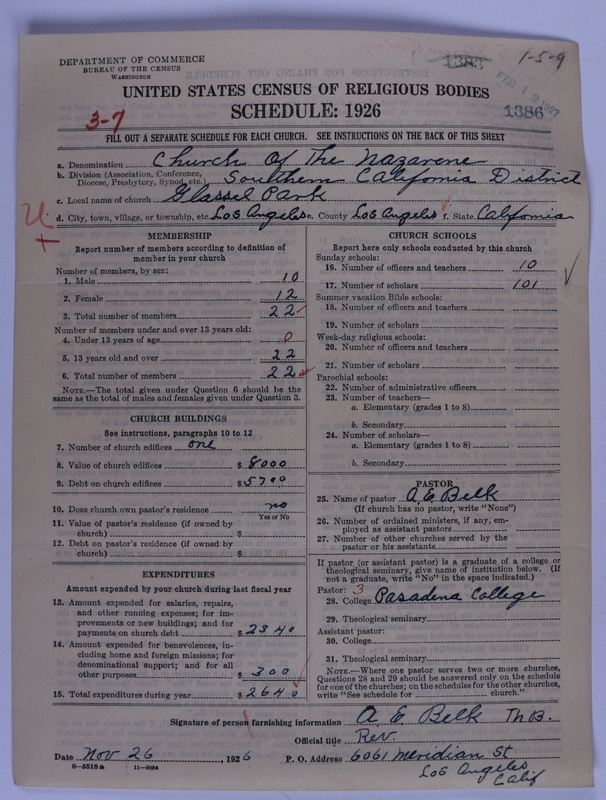 DEPARTMENT OF COMMERCE
BUREAU OF THE CENSUS
WASHINGTON
1383
1-5-9
FEB 12 1927
UNITED STATES CENSUS OF RELIGIOUS BODIES
SCHEDULE: 1926
1386
3-7
FILL OUT A SEPARATE SCHEDULE FOR EACH CHURCH. SEE INSTRUCTIONS ON THE BACK OF THIS SHEET
a. Denomination Church Of The Nazarene
b. Division (Association, Conference, Diocese, Presbytery, Synod, etc.) Southern California District
c. Local name of church Glassel Park
d. City, town, village, or township, etc. Los Angeles e. County Los Angeles f. State California
U
MEMBERSHIP
Report number of members according to definition of
member in your church
Number of members, by sex:
1. Male 10
2. Female 12
3. Total number of members 22
Number of members under and over 13 years old:
4. Under 13 years of age 0
5. 13 years old and over 22
6. Total number of members 22
NOTE.—The total given under Question 6 should be the
same as the total of males and females given under Question 3.
CHURCH BUILDINGS
See instructions, paragraphs 10 to 12
7. Number of church edifices one
8. Value of church edifices $ 8000
9. Debt on church edifices $ 5700
10. Does church own pastor's residence no
Yes or No
11. Value of pastor's residence (if owned by
church) $
12. Debt on pastor's residence (if owned by
church) $
EXPENDITURES
Amount expended by your church during last fiscal year
13. Amount expended for salaries, repairs,
and other running expenses; for im-
provements or new buildings; and for
payments on church debt $ 2340
14. Amount expended for benevolences, in-
cluding home and foreign missions; for
denominational support; and for all
other purposes $ 300
15. Total expenditures during year $ 2640
CHURCH SCHOOLS
Report here only schools conducted by this church
Sunday schools:
16. Number of officers and teachers 10
17. Number of scholars 101
Summer vacation Bible schools:
18. Number of officers and teachers
19. Number of scholars
Week-day religious schools:
20. Number of officers and teachers
21. Number of scholars
Parochial schools:
22. Number of administrative officers
23. Number of teachers—
a. Elementary (grades 1 to 8)
b. Secondary
24. Number of scholars—
a. Elementary (grades 1 to 8)
b. Secondary
PASTOR
25. Name of pastor A. E. Belk
(If church has no pastor, write "None")
26. Number of ordained ministers, if any, em-
ployed as assistant pastors
27. Number of other churches served by the
pastor or his assistants
If pastor (or assistant pastor) is a graduate of a college or
theological seminary, give name of institution below. (If
not a graduate, write "No" in the space indicated.)
Pastor: 3
28. College Pasadena College
29. Theological seminary
Assistant pastor:
30. College
31. Theological seminary
NOTE.—Where one pastor serves two or more churches,
Questions 28 and 29 should be answered only on the schedule
for one of the churches; on the schedules for the other churches,
write "See schedule for church."
Signature of person furnishing information A. E. Belk Th.B.
Official title Rev.
Date Nov 26, 1926 P. O. Address 6061 Meridian St
Los Angeles
Calif
8-5518a 11-9034